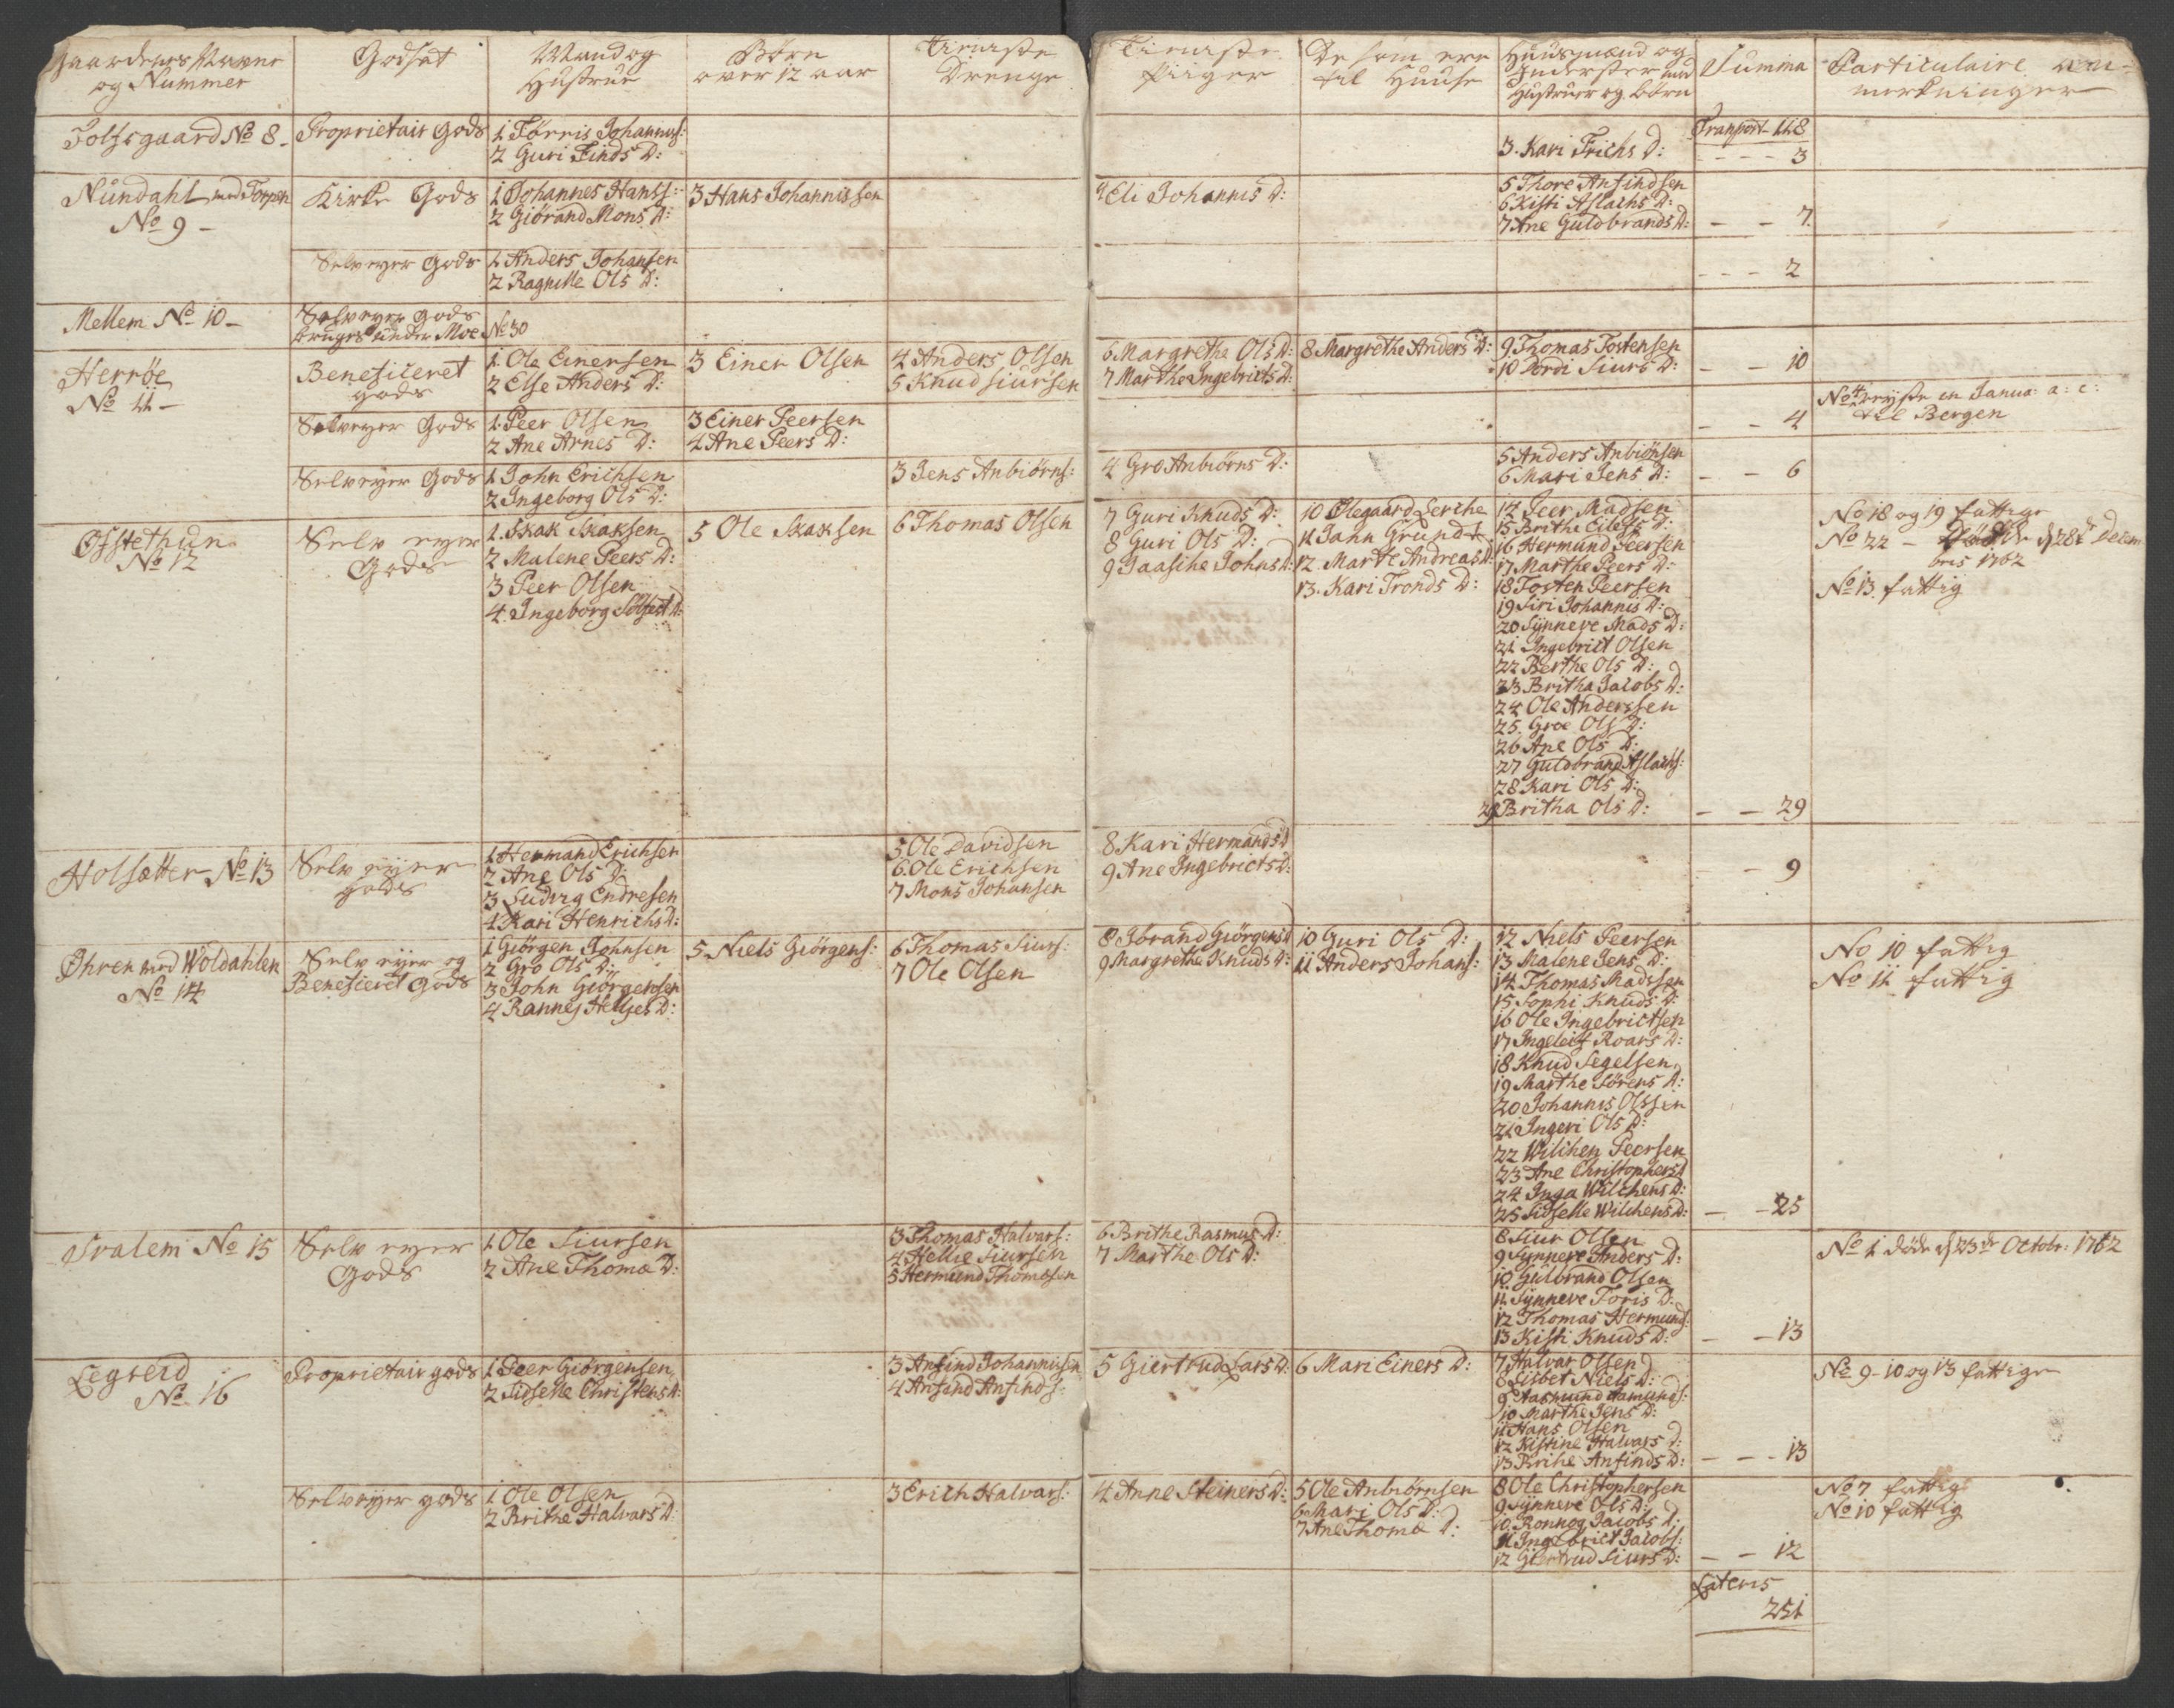 Gaardenes Navne og Nummer
Godset
Mand og Hustrue
Børn over 12 aar
Tieniste Drenge
Tieniste Piiger
De som ere til Huuse
Huusmænd og Inderster med Hustruer og børn
Summa
Particulaire anmerkninger
Transport 118
Toltzgaard No 8 -
Proprietair Gods
1 Tørris Johannes:
2 Guri Finds D:
3. Kari Frichs D:
- - - - 3
Nündahl med Torpen
No 9 -
Kirke Gods
1 Johannes Hanss:
2 Giørand Mons D:
3 Hans Johannissen
4 Eli Johannis D:
5 Thore Anfindsen
6 Kisti Aslachs D:
7 Ane Guldbrands D:
- - 7.
Selveyer Gods
1 Anders Johansen
2 Ragnille Ols D:
- - - 2
Mellem No 10 -
Selveyer Gods
bruges under Moe No 30
Herrøe
No 11 -
Beneficeret gods
1. Ole Einersen
2 Else Anders D:
3 Einer Olsen
4 Anders Olsen
5 Knud Siursen
6 Margrethe Ols D:
7 Marthe Ingebricts D:
8 Margrethe Anders D:
9 Thomas Tostensen
10 Tora Siurs D:
- - 10
Selveyer Gods
1. Peer Olsen
2 Ane Arnes D:
3 Einer Peersen
4 Ane Peers D:
- - 4
No 4 reyste in Janua: a: c:
til Bergen
Selveyer Gods
1 John Erichsen
2 Ingeborg Ols D:
3 Jens Anbiørns:
4 Gro Anbiørns D:
5 Anders Anbiönsen
6 Mari Jens D:
- - 6
Offstethün
No 12
Selv eyer Gods
1. Skak Skaksen
2 Malene Peers D:
3 Peer Olsen
4. Ingeborg Solfest D:
5 Ole Skaksen
6 Thomas Olsen
7 Guri Knuds D:
8 Guri Ols D:
9 Taasche Johns D:
10 Olegaard Lerche
11 Jahn Grundt
12. Marte Andreas D:
13. Kari Tronds D:
14 Peer Madsen
15 Brithe Eilefs D:
16 Hermund Peersen
17 Marthe Peers D:
18 Tosten Peersen
19 Siri Johannis D:
20 Synneve Mads D:
21 Ingebrict Olsen
22 Berthe Ols D:
23 Britha Jacobs D:
24 Ole Anderssen
25. Groe Ols D:
26 Ane Ols D:
27 Guldbrand Aslachs:
28 Kari Ols D:
29 Britha Ols D:
- - 29
No 18 og 19 fattige
No 22 - Døde d 28de Decembris 1762
No 13. fattig
Holsætter No 13
Selv eyer gods
1 Hermand Erichsen
2 Ane Ols D:
3 Ludvig Endresen
4 Kari Henrichs D:
5 Ole Davidsen
6. Ole Erichsen
7 Mons Johansen
8 Kari Hermands D
9 Ane Ingebricts D:
- - 9
Øhren med Woldahlen
No 14
Selv eyer og Beneficeret Gods
1 Giørgen Johnsen
2 Gro Ols D:
3 John Giørgensen
4 Ranney Helges D:
5 Niels Giörgens:
6 Thomas Siurs:
7 Ole Olsen
8 Jorand Giørgens D
9 Margrethe Knuds D:
10 Guri Ols D:
11 Anders Johans:
12 Niels Peersen
13 Malene Jens D:
14 Thomas Madssen
15 Sophi Knuds D:
16 Ole Ingebrictsen
17 Ingeleif Roars D:
18 Knud Segelsen
19 Marthe Sørens D:
20 Johannis Olssen
21 Ingeri Ols D:
22 Wilchen Peersen
23 Ane Christophers D
24 Inga Wilchens D:
25 Sidselle Wilchens D:
- - 25
No 10 fattig
No 11 fattig
Svalem No 15
Selv eyer Gods
1 Ole Siursen
2 Ane Thomæ D:
3 Thomas Halvars:
4 Hellie Siursen
5 Hermund Thomæsen
6 Brithe Rasmus D:
7 Marthe Ols D:
8 Siur Olsen
9 Synneve Anders D:
10 Gulbrand Olsen
11 Synneve Toris D:
12 Thomas Hermund:
13 Kisti Knuds D:
- - 13
No 1 døde d 23de Octobr: 1762
Legreid
No 16
Proprietair gods
1 Peer Giørgensen
2 Sidselle Christens D:
3 Anfind Johannissen
4 Anfind Anfinds:
5 Giertrud Lars D:
6 Mari Einers D:
7 Halvar Olsen
8 Lisbet Niels D:
9 Aasmund Aamunds:
10 Marthe Jens D:
11 Hans Olsen
12 Kistine Halvars D:
13 Brihe Anfinds D:
- - - 13
No 9 - 10 og 13 fattige
Selveyer gods
1 Ole Olsen
2 Brithe Halvars D:
3 Erich Halvars:
4 Anne Steiners D:
5 Ole Anbiørnsen
6 Mari Ols D:
7 Ane Thomæ D:
8 Ole Christophersen
9 Synneve Ols D:
10. Ronnog Jacobs D:
11 Ingebrict Jacobs:
12 Giertrud Siurs D:
- - 12
No 7 fattig
No 10 fattig
Lateris
251